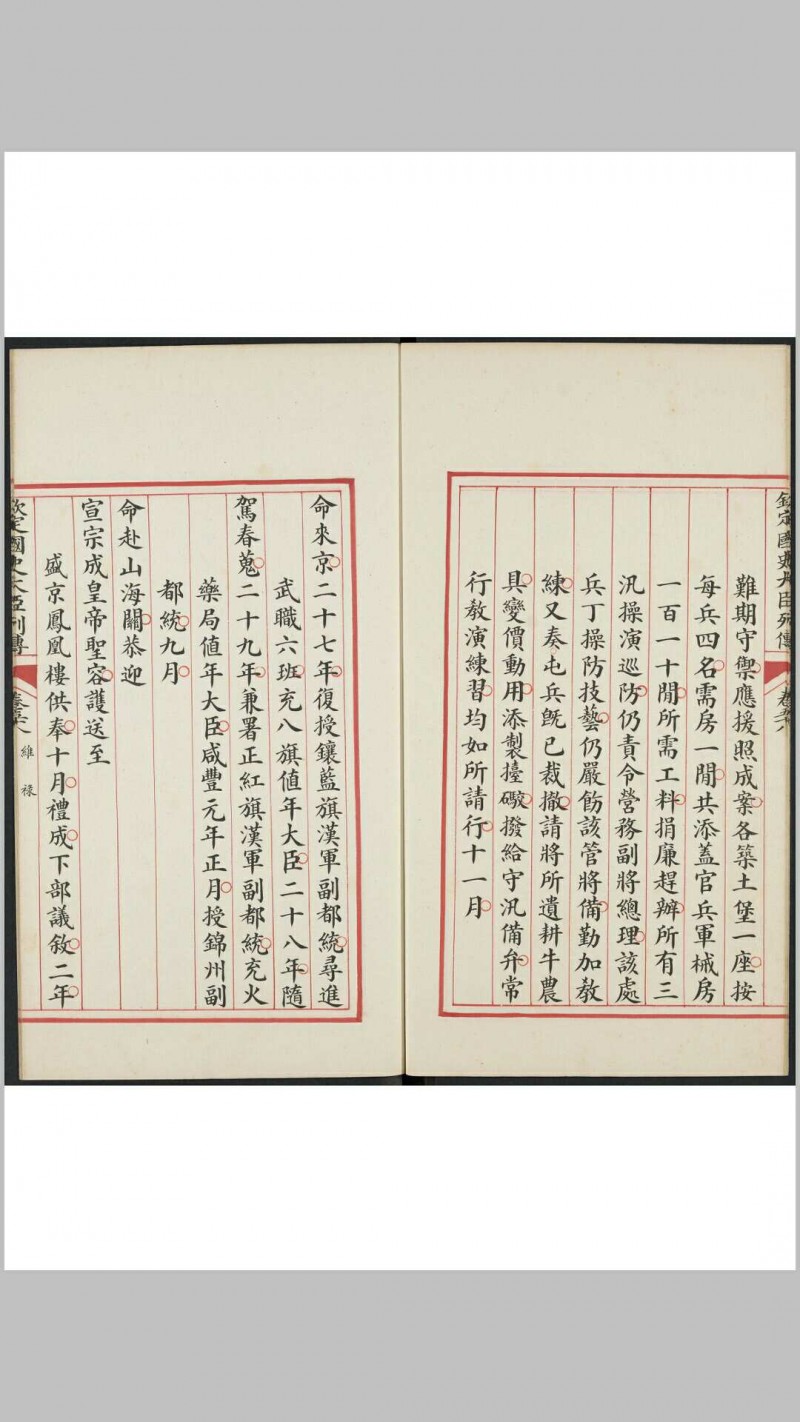 欽定國史大臣列傳
難期守禦應援照成案各築土堡一座按
每兵四名需房一間共添蓋官兵軍械房
一百一十間所需工料捐廉趕辦所有三
汛操演巡防仍責令營務副將總理該處
兵丁操防技藝仍嚴飭該管將備勤加教
練又奏屯兵既已裁撤請將所遺耕牛農
具變價動用添製擡礮撥給守汛備弁常
行教演練習均如所請行十一月
命來京二十七年復授鑲藍旗漢軍副都統尋進
武職六班充八旗值年大臣二十八年隨
駕春蒐二十九年兼署正紅旗漢軍副都統充火
藥局值年大臣咸豐元年正月授錦州副
都統九月
命赴山海關恭迎
宣宗成皇帝聖容護送至
盛京鳳凰樓供奉十月禮成下部議敘二年
欽定國史大臣列傳
維祿